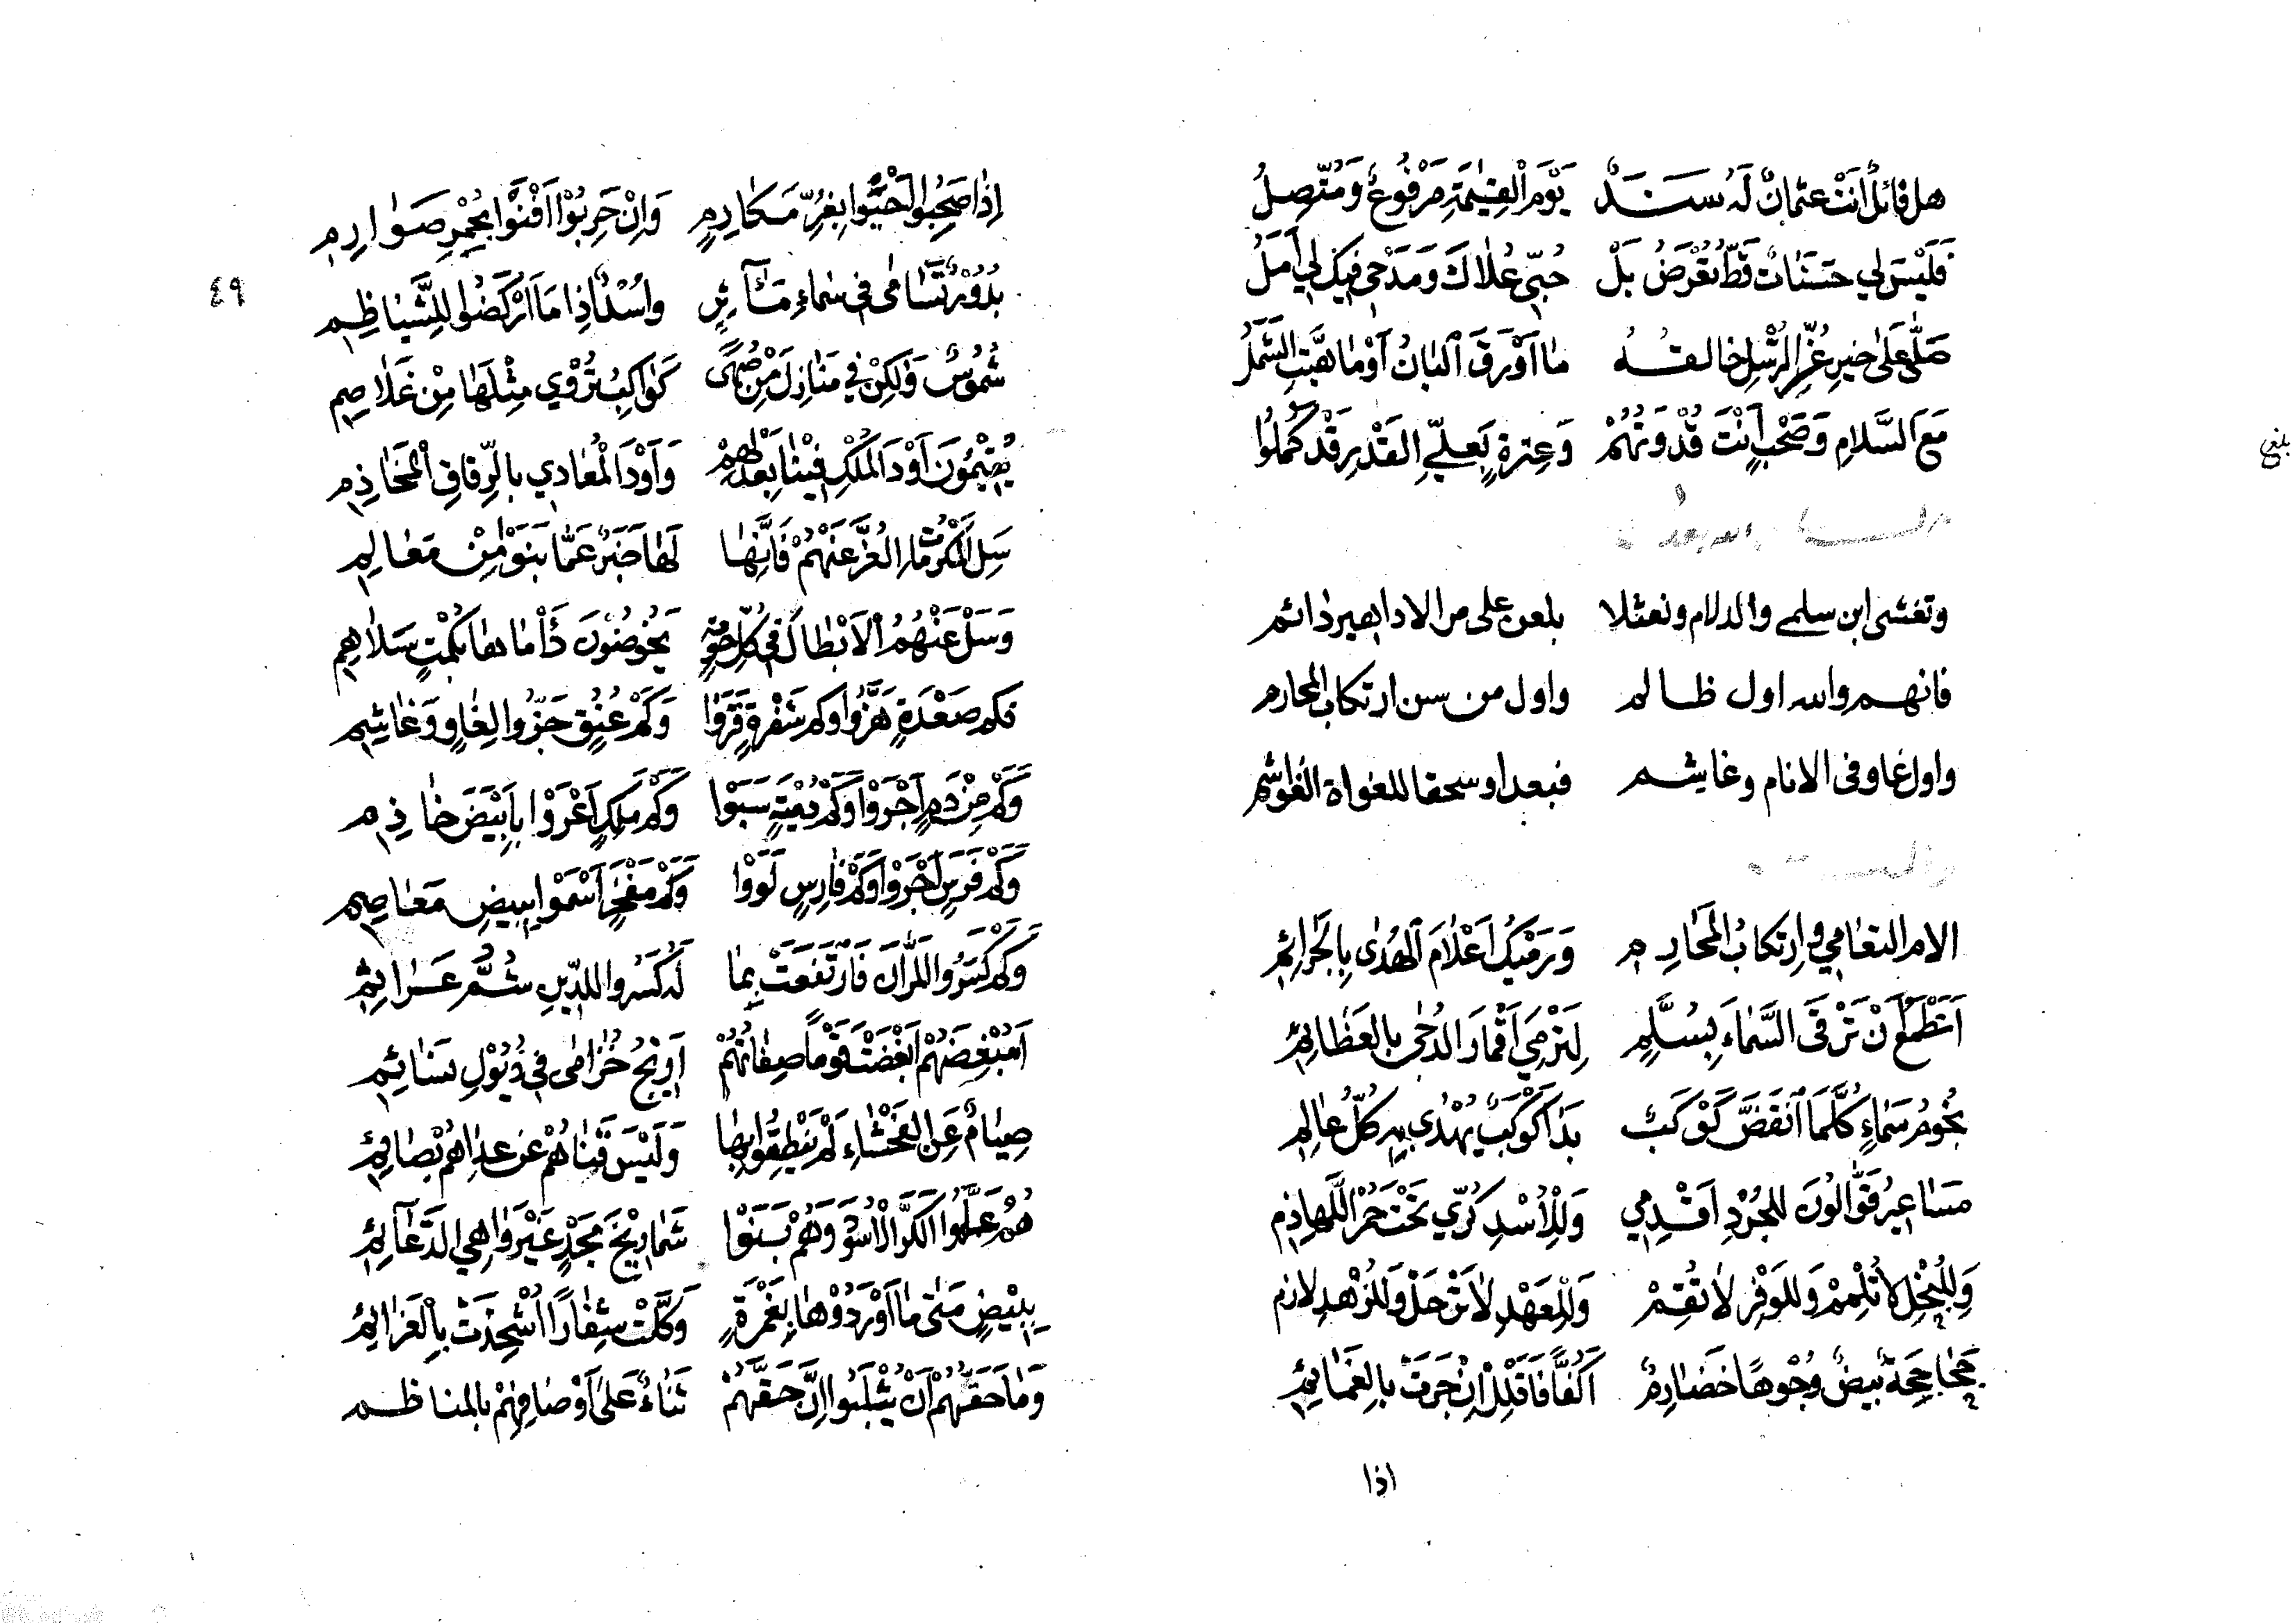 هل قائل أنت عثمان له سند يوم القيمة مرفوع ومتصل
فليس لي حسنات قط تعرض بل حبّي علاك ومدحي فيك لي أمل
صلّى على خير غرّ الرسل خالقه ما أورق البان أو ما هبّت الشمل
مع السلام وصحب أنت قدوتهم وعترة بعليّ القدر قد كملوا
بلغ
وتغشى ابن سلمى والدلام ونعثلا بلعن على مر الادا هير دائم
فانهم والله اول ظالم واول من سن ارتكاب المحارم
واول غاو فى الانام وغاشم فبعدا وسحقا للغواة الغواشم
الام التعامي وارتكاب المحارم ورميك أعلام الهدى بالجرائم
أتطمع أن ترقى السماء بسلّم لترمي أقمار الدجى بالعظائم
نجوم سماء كلّما انقضّ كوكب بدا كوكب يهدى به كلّ عالم
مساعير قوّالون للجرد اقدمي وللأسد كرّي تحت حمر اللهاذم
وللبخل لا تلمم وللوفر لا تقم وللعهد لا ترحل وللزهد لازم
جحاجحة بيض وجوها خضارم أكفّا فاقلل إن جرت بالغمائم
اذا
٤٩
إذا صحبوا لحبّوا بغرّ مكارم وإن حربوا أفنوا بحمر صوارم
بدور تسامى فى سماء مآثر وأسد إذا ما اركضوا للشياظم
شموس ولكن في منازل من كواكب تروي مثلها من غلاصم
يقيمون أود الملك فينا بعدلهم وأود المعادي بالرقاق المخاذم
سل المكرمات الغرّ عنهم فإنّها لها خبر عمّا بنوا من معالم
وسل عنهم الأبطال في كلّ حومة يخوضون دأماها بكمت سلاهم
فكم صعدة هزّوا وكم شفرة قروا وكم عنق حزّوا لغاو وغاشم
وكم من دم أجروا وكم دمية سبوا وكم ملك أغروا بأبيض خاذم
وكم فرس أجروا وكم فارس لووا وكم مفخر أسموا ببيض معاصم
وكم كسروا المرّان فارتفعت بما له كسروا للدين شمّ عرائم
أمبغضهم أبغضت قوما صفاتهم أريج خزامى في ذيول نسائم
صيام عن الفحشاء لم ينطقوا بها وليس قناهم عن عداهم بصائم
هم علّموا الكرّ الأسود وهم بنوا شماريخ مجد غير واهي الدعائم
ببيض متى ما أوردوها بغمرة وكلّت شفارا أشحذت بالعزائم
وما حقّهم أن يثلبوا إنّ حقّهم ثناء على أوصافهم بالمناظم